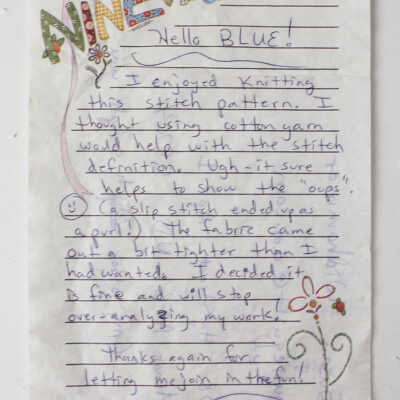 NINE
Hello BLUE!
I enjoyed Knitting
this stitch pattern. I
thought using cotton yarn
would help with the stitch
definition. Ugh - it sure
helps to show the "oops".
(a slip stitch ended up as
a purl!) The fabric came
out a bit tighter than I
had wanted. I decided it
is fine and will stop
over-analyzing my work!
Thanks again for
letting me join in the fun!